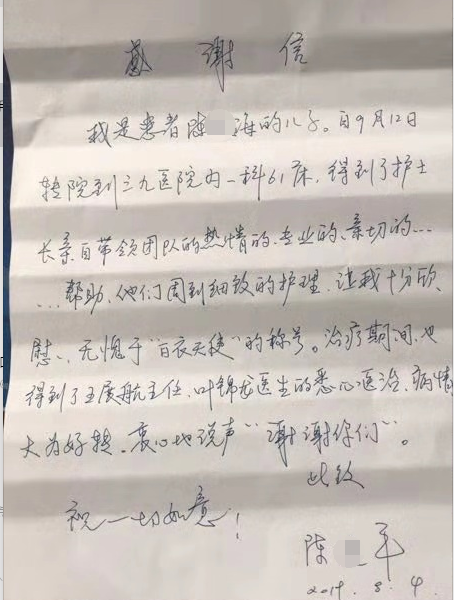 感谢信
我是患者陈 海的儿子。自9月12日
转院到三九医院内一科61床，得到了护士
长亲自带领团队的热情的、专业的、亲切的…
…帮助，他们周到细致的护理，让我十分欣
慰、无愧于“白衣天使”的称号。治疗期间，也
得到了王展航主任、叶锦龙医生的悉心医治，病情
大为好转，衷心地说声“谢谢你们”。
此致
祝一切如意！
陈 军